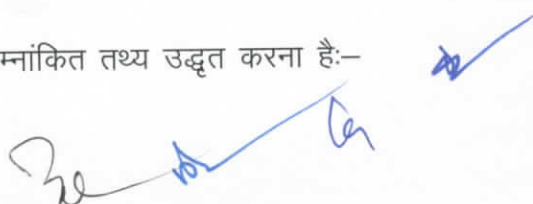 म्नांकित तथ्य उद्धृत करना है:–